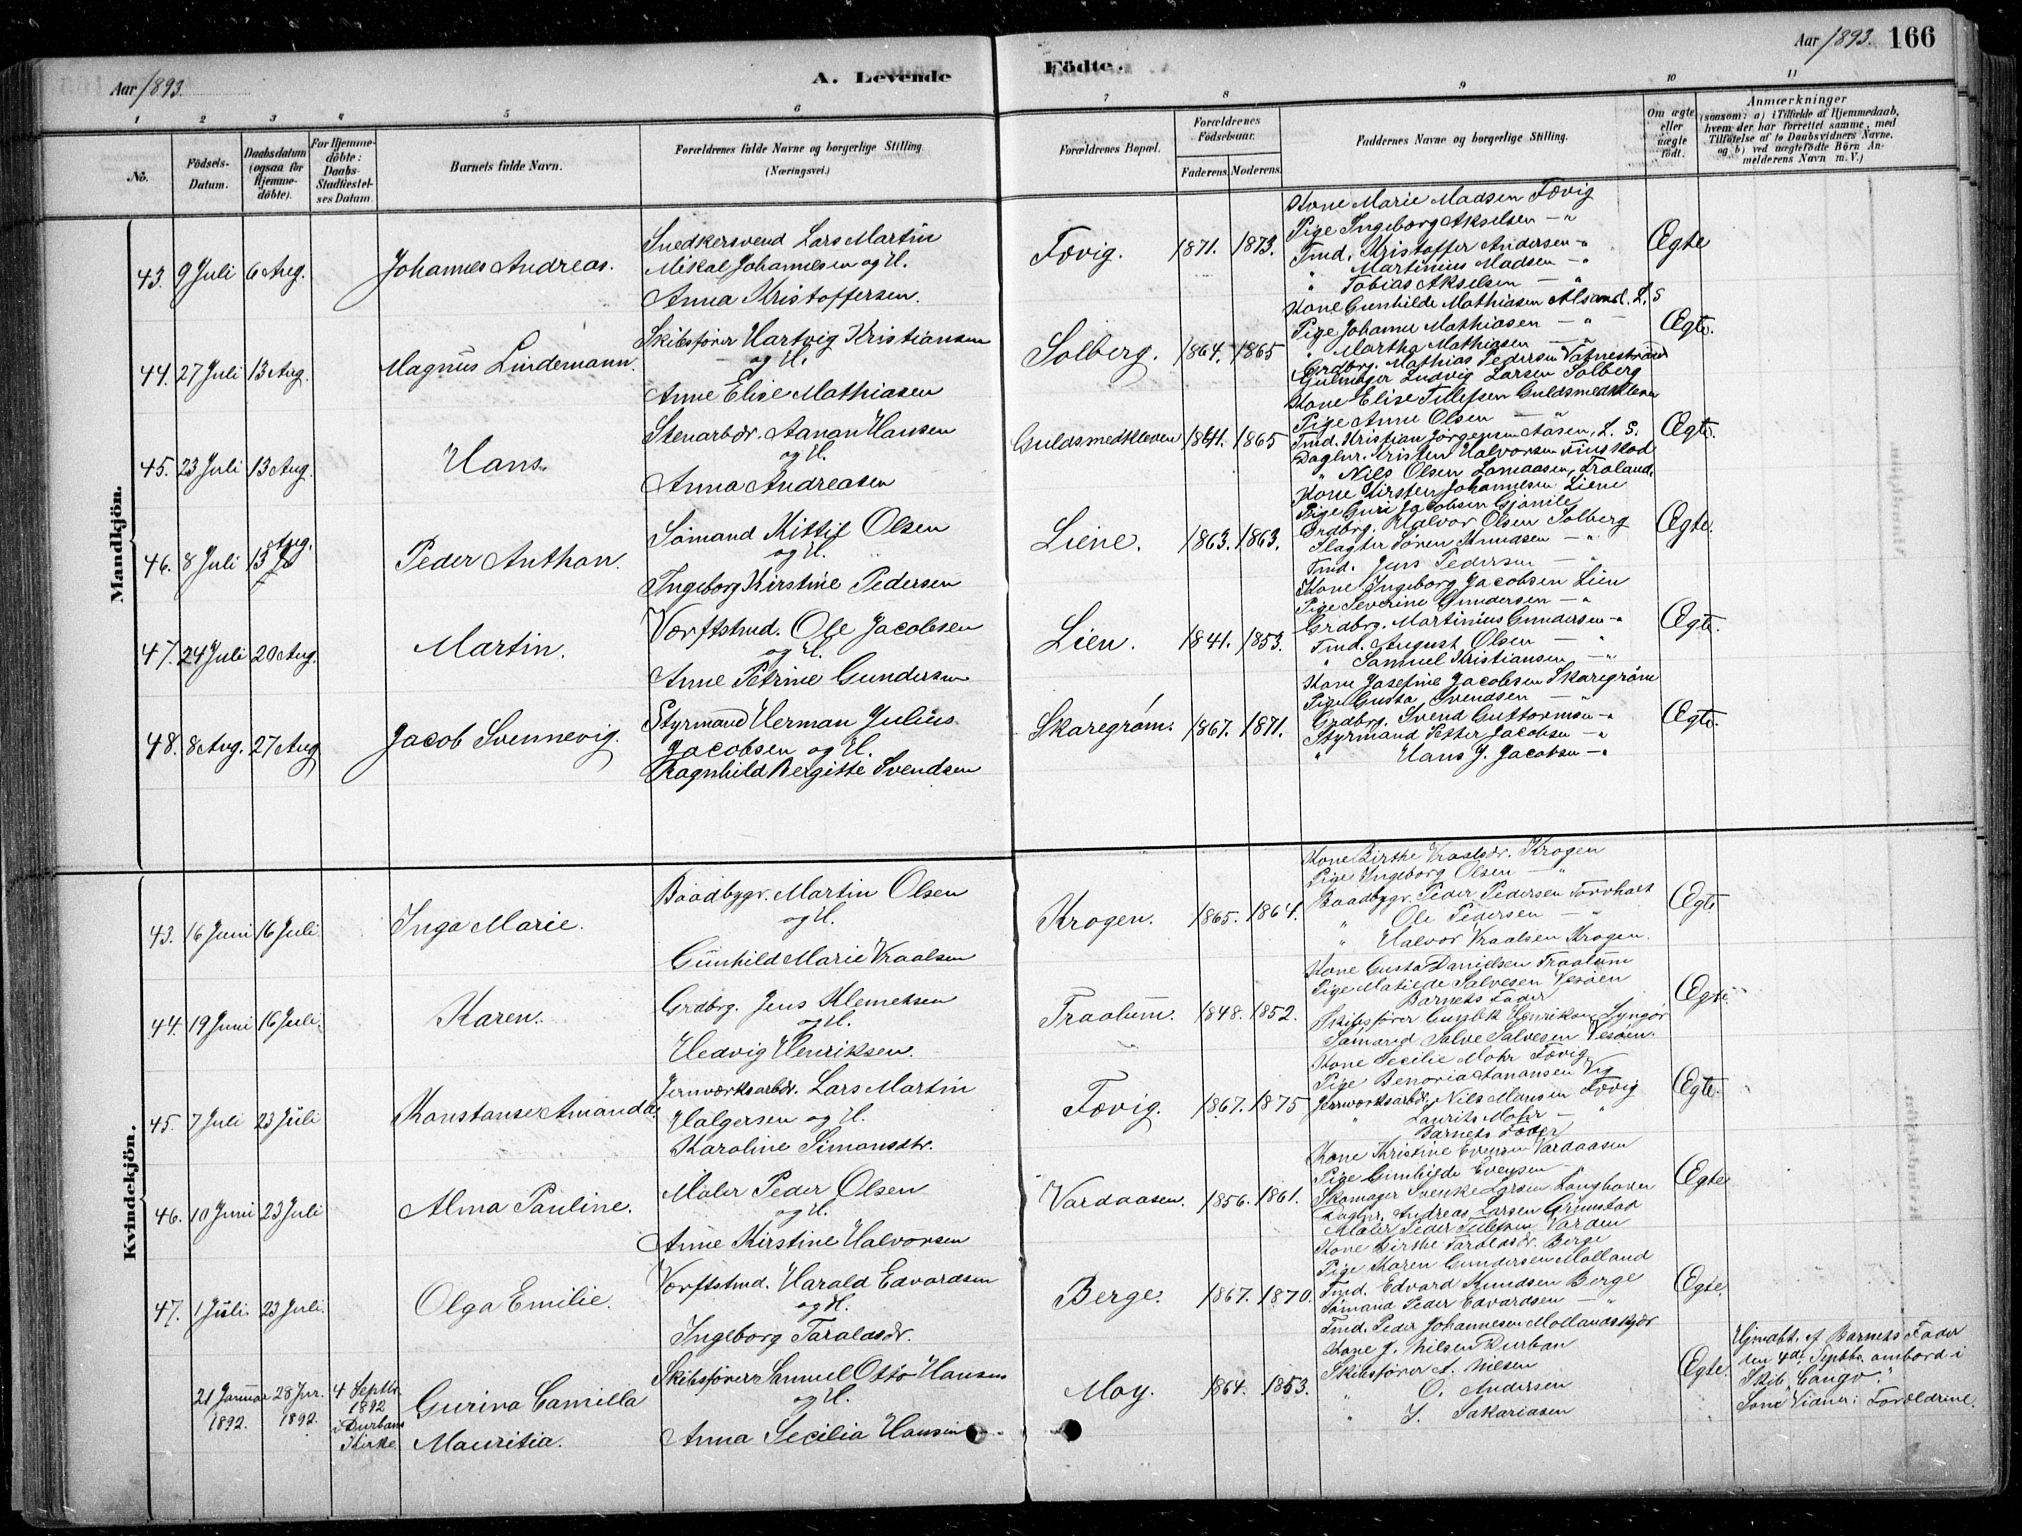 Aar 1893.
A. Levende
Födte.
Aar 1893. 166
1 2 3 4 5 6 7 8 9 10 11
No.
Födsels-Datum.
Daabsdatum (ogsaa for Hjemmedöbte).
For Hjemmedöbte: Daabs-Stadfæstelses Datum.
Barnets fulde Navn.
Forældrenes fulde Navne og borgerlige Stilling.
(Næringsvei.)
Forældrenes Bopæl.
Forældrenes Födselsaar.
Faderens. Moderens.
Faddernes Navne og borgerlige Stilling.
Om ægte eller uægte födt.
Anmærkninger
(saasom: a) i Tilfælde af Hjemmedaab, hvem der har forrettet samme, med Tilföielse af to Daabsvidners Navne, og b) ved uægtefödte Börn Anmelderens Navn m. V.)
Mandkjön.
43. 9 Juli 6 Aug. Johannes Andreas.
Snedkersvend Lars Martin
Mikal Johannesen og H.
Anna Kristoffersen.
Fævig. 1871. 1873.
Kone Marie Madsen Fævig
Pige Ingeborg Akselsen — "
Tmd. Kristoffer Andersen — "
" Martinius Madsen — "
" Tobias Akselsen — "
Ægte
44. 27 Juli 13 Aug. Magnus Lindemann.
Skibsfører Hartvig Kristiansen
og H.
Anne Elise Mathiasen
Solberg. 1864. 1865
Kone Gunhilde Mathiasen L. S
Pige Johanne Mathiasen — "
" Martha Mathiasen — "
Grdbrg. Mathias Pedersen Vatnestrand
Gulmager Ludvig Larsen Solberg
Ægte.
45. 23 Juli 13 Aug. Hans.
Stenarbdr. Aanon Hansen
og H.
Anna Andreasen
Guldsmedkleven 1841. 1865
Kone Elise Tellefsen Guldsmedkleven
Pige Anne Olsen — "
Tmd. Kristian Jørgensen Aasen, L. S.
Daglnr. Kristen Halvorsen
" Nils Olsen
Ægte.
46. 8 Juli 13 Aug. Peder Anthon.
Sømand Kittil Olsen
og H.
Ingeborg Kirstine Pedersen
Liene. 1863. 1863.
Kone Kirsten Johannesen Liene
Pige Guri Jacobsen
Grdbrg. Halvor Olsen Solberg
Slagter Søren Knudsen — "
Tmd. Jens Pedersen — "
Ægte.
47. 24 Juli 20 Aug. Martin.
Værftstmd. Ole Jacobsen
og H.
Anne Petrine Gundersen
Lien. 1841. 1853.
Kone Ingeborg Jacobsen Lien
Pige Severine Gundersen — "
Grdbrg. Martinius Gundersen — "
Tmd. August Olsen — "
" Samuel Kristiansen — "
Ægte.
48. 8 Aug. 27 Aug Jacob Svennevig.
Styrmand Herman Julius
Jacobsen og H.
Ragnhild Bergitte Svendsen
Skaregrøm. 1867. 1871.
Kone Josefine Jacobsen Skaregrøm
Pige Gusta Svendsen — "
Grdbrg. Svend Guttormsen — "
Styrmand Petter Jacobsen — "
" Hans J. Jacobsen — "
Ægte.
Kvindekjön.
43. 16 Juni 16 Juli. Inga Marie.
Baadbygr. Martin Olsen
og H.
Gunhild Marie Vraalsen
Krogen. 1865. 1864.
Kone Birthe Vraalsdr. Krogen
Pige Ingeborg Olsen — "
Baadbygr. Peder Pedersen
" Ole Pedersen — "
" Halvor Vraalsen Krogen.
Ægte
44. 19 Juni 16 Juli. Karen.
Grdbrg. Jens Klemetsen
og H.
Hedvig Henriksen.
Traatum. 1848. 1852.
Kone Gusta Danielsen Traatum
Pige Matilde Salvesen Vesøen
Barnets Fader
Skibsfører Henriksen Lyngør
Sømand Salve Salvesen Vesøen.
Ægte.
45. 7 Juli 23 Juli Konstanse Amanda
Jernværksarbdr. Lars Martin
Holgersen og H.
Karoline Simonsdtr.
Fævig. 1867. 1875
Kone Secilie Mohr Fævig
Pige Benoria Aanonsen Vig
Jernværksarbdr. Nils Hansen Fævig
" Laurits Mohr — "
Barnets Fader
Ægte.
46. 10 Juni 23 Juli Alma Pauline.
Maler Peder Olsen
og H.
Anne Kirstine Halvorsen
Vardaasen. 1856. 1861.
Kone Kristine Evensen Vardaasen
Pige Gunhilde Evensen —
Skomager Svenke Larsen
Daglnr. Andreas Larsen Grimstad
Maler Peder Tellefsen Varden
Ægte
47. 1 Juli 23 Juli. Olga Emilie.
Værftstmd. Harald Edvardsen
og H.
Ingeborg Taraldsdr.
Berge. 1867. 1870.
Kone Birthe Taraldsdr. Berge
Pige Karen Gundersen Molland
Tmd. Edvard Knudsen Berge
Sømand Peder Edvardsen — "
Tmd. Peder Johannesen Mollandskjær
Ægte.
21 Januar 1892. 28 Jnr. 1892. 4 Septbr. 1892 i Durbans Kirke
Gurina Camilla
Mauritia.
Skibsfører Samuel Otto Hansen
og H.
Anna Secilia Hansen
Moy. 1864. 1853.
Kone J. Nilsen Durban
Skibsfører A. Nilsen
" O. Andersen
" J. Sakariasen
Ægte.
Hjmdbt. af Barnets Fader
den 4de Septbr. ombord i
Skib "Cango".
Som Vidner: Forældrene.